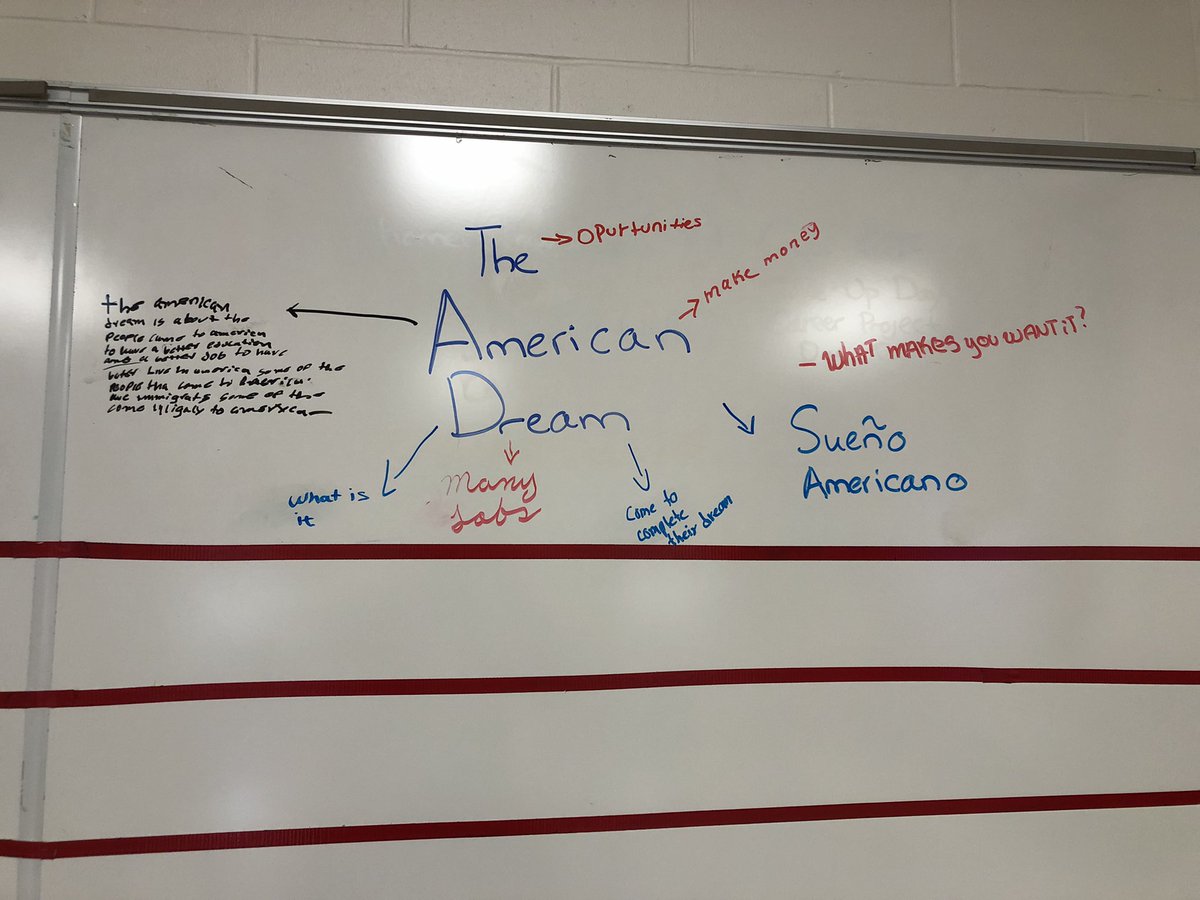 The
→ OPurtunities
American
→ make money
- WHAT MAKES YOU WANT iT?
Dream
Sueño
Americano
the american
dream is about the
People come to america
to have a better education
and a better Job to have
live in america some of the
People tha come to America.
immigrats some of the
come to america
What is
it
Many
Jobs
Come to
complete
their dream